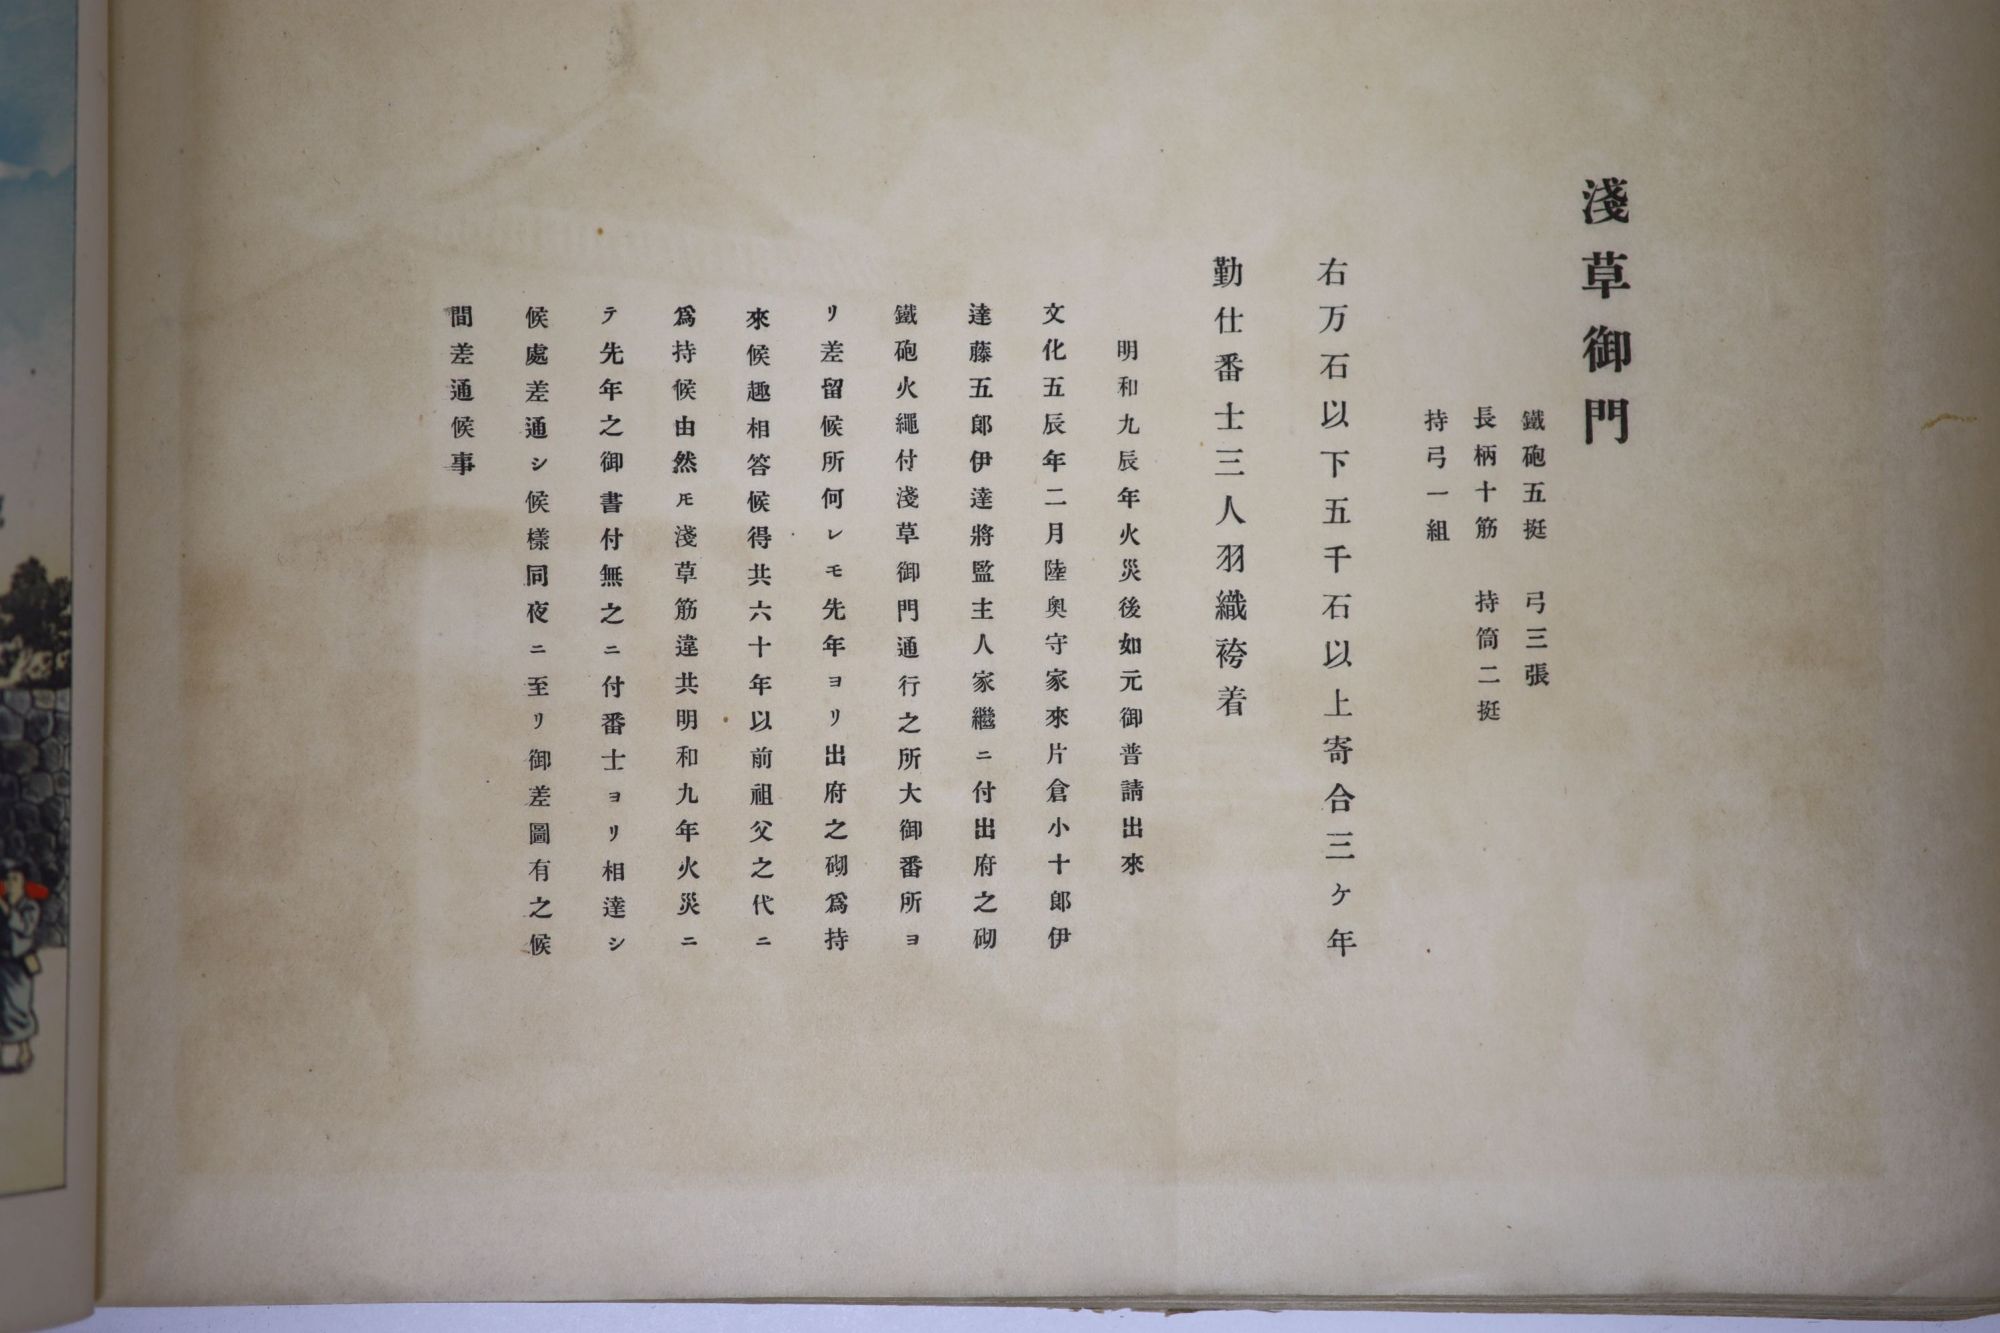 淺草御門
鐵砲五挺　弓三張
長柄十筋　持筒二挺
持弓一組
右万石以下五千石以上寄合三ヶ年
勤仕番士三人羽織袴着
明和九辰年火災後如元御普請出來
文化五辰年二月陸奥守家來片倉小十郎伊
達藤五郎伊達將監主人家繼ニ付出府之砌
鐵砲火繩付淺草御門通行之所大御番所ヨ
リ差留候所何レモ先年ヨリ出府之砌爲持
來候趣相答候得共六十年以前祖父之代ニ
爲持候由然𪜈淺草筋違共明和九年火災ニ
テ先年之御書付無之ニ付番士ヨリ相達シ
候處差通シ候樣同夜ニ至リ御差圖有之候
間差通候事